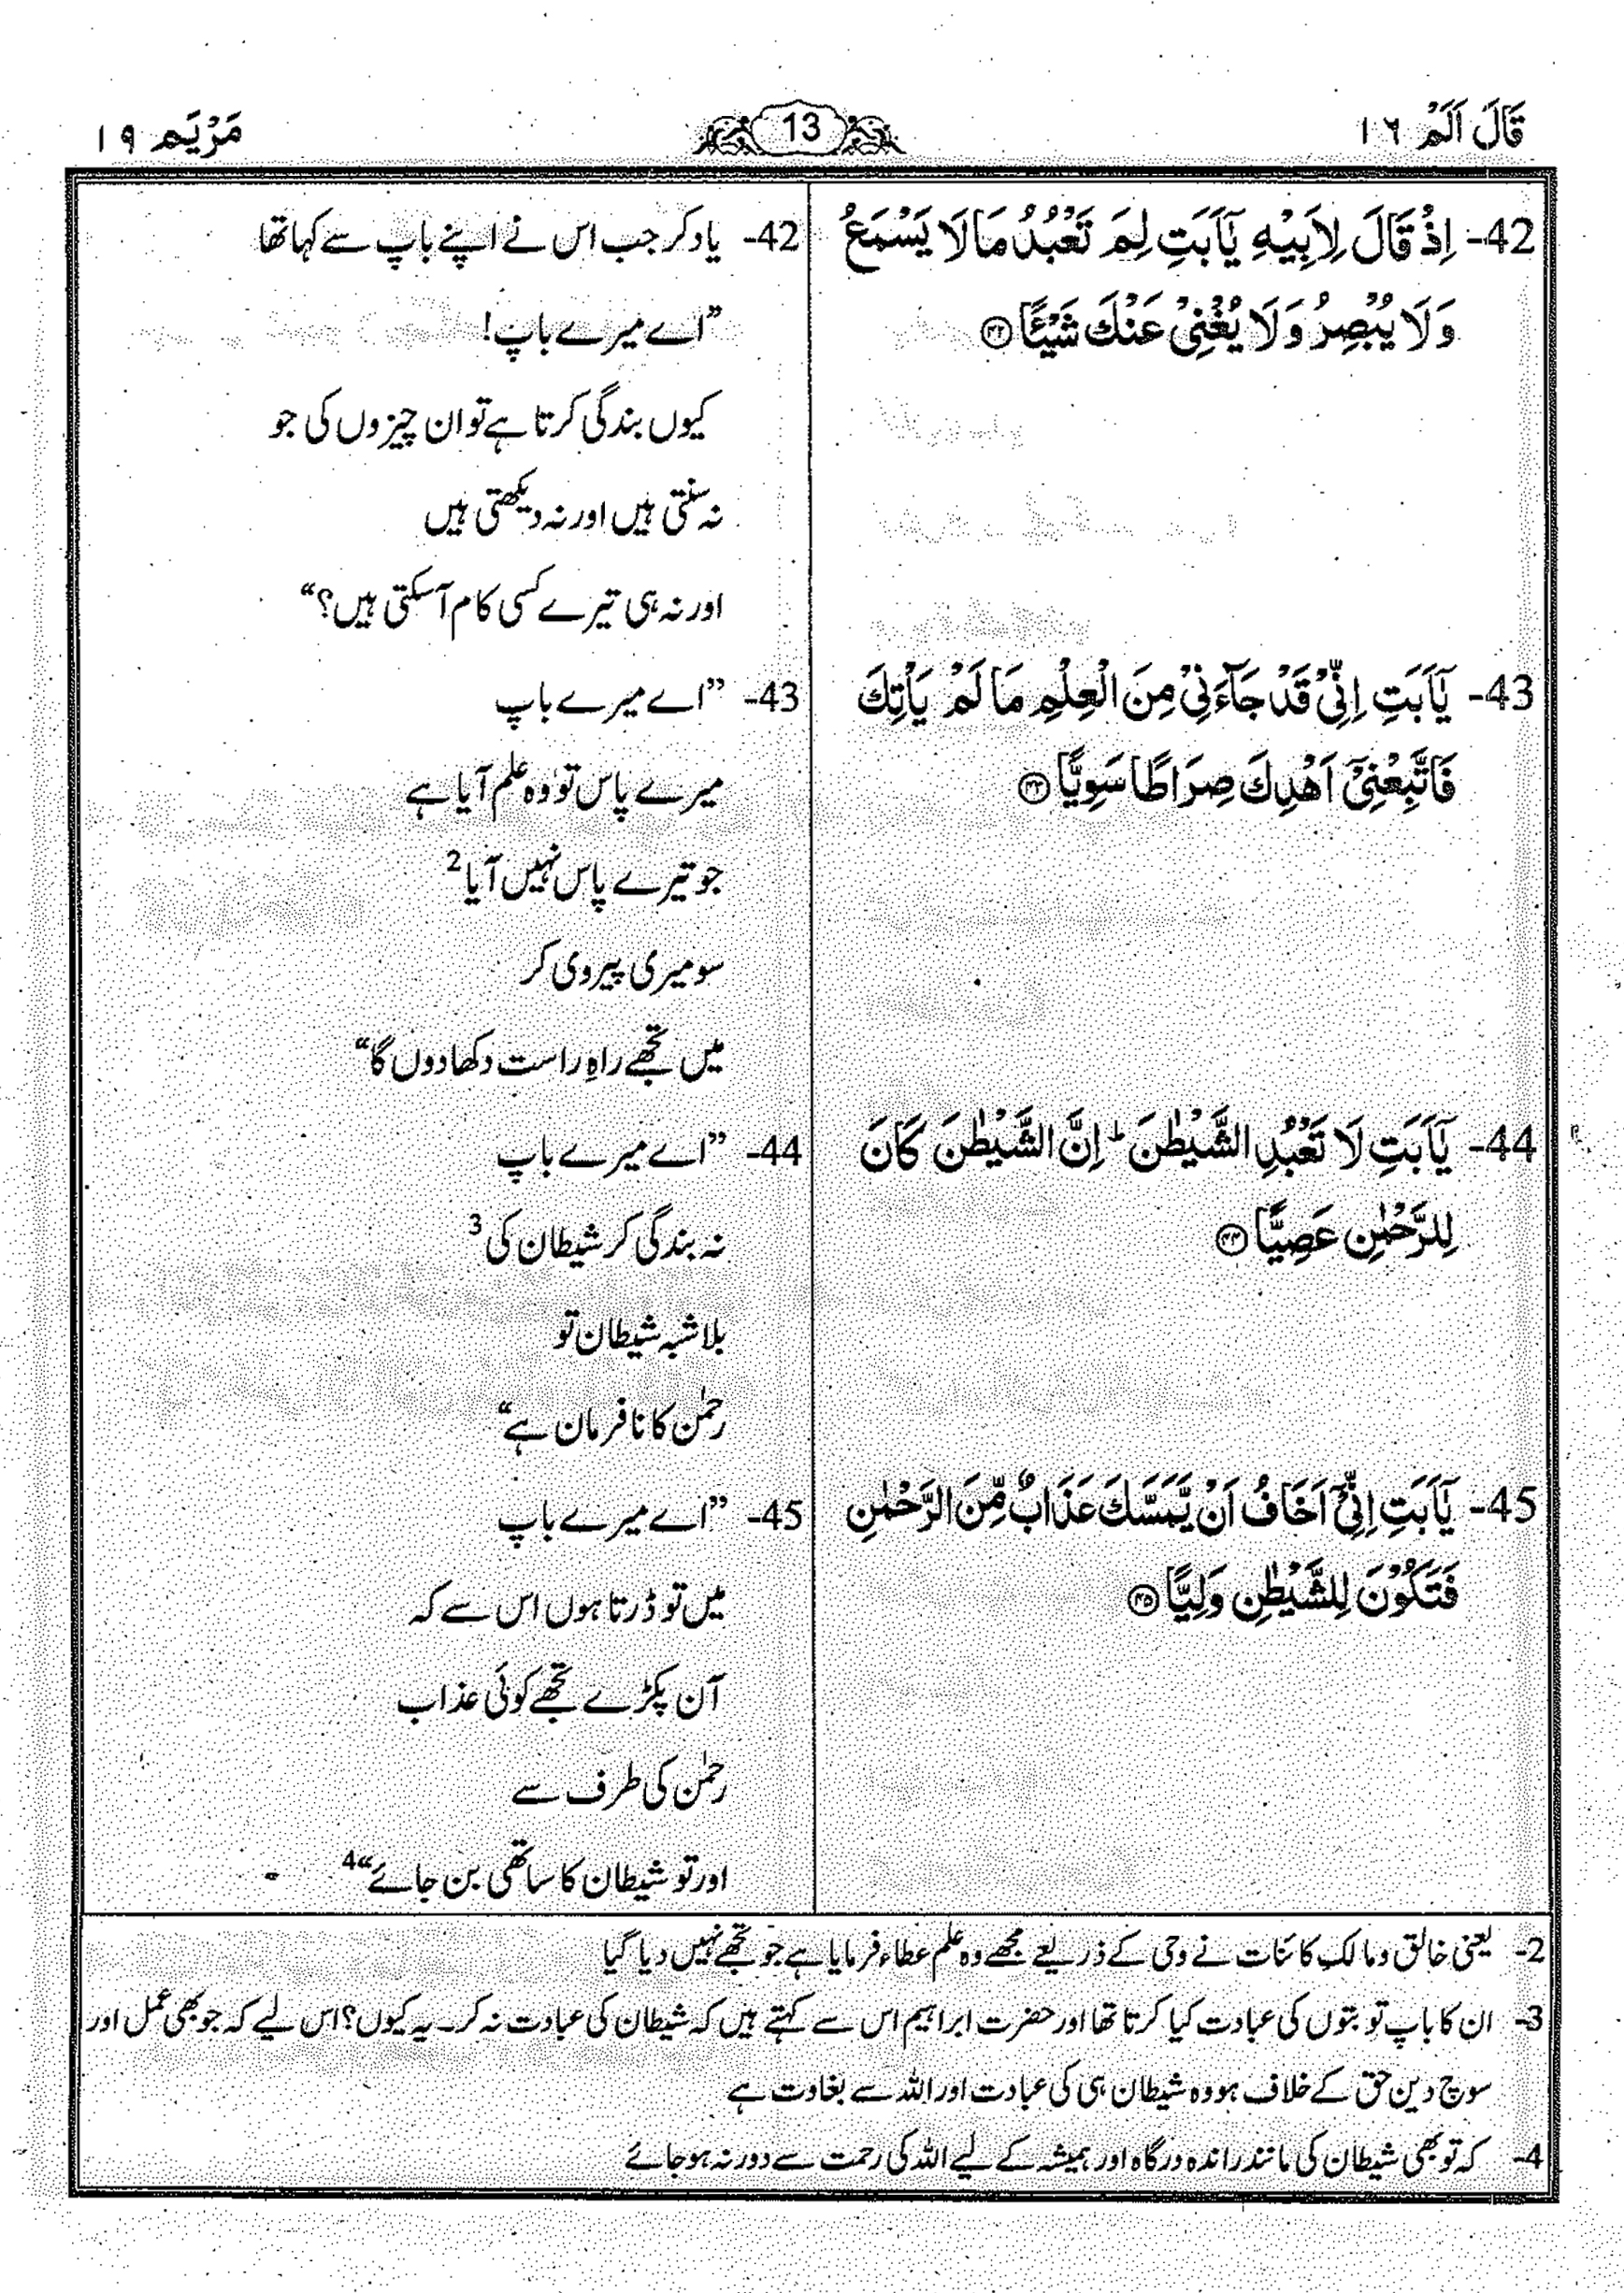 قَالَ اَلَمْ ١٦
13
مَرْيَم ١٩
42- اِذْ قَالَ لِاَبِيْهِ يٰٓاَبَتِ لِمَ تَعْبُدُ مَا لَا يَسْمَعُ
وَلَا يُبْصِرُ وَلَا يُغْنِىْ عَنْكَ شَيْـًٔا ۝۴۲
43- يٰٓاَبَتِ اِنِّىْ قَدْ جَآءَنِىْ مِنَ الْعِلْمِ مَا لَمْ يَاْتِكَ
فَاتَّبِعْنِىْٓ اَهْدِكَ صِرَاطًا سَوِيًّا ۝۴۳
44- يٰٓاَبَتِ لَا تَعْبُدِ الشَّيْطٰنَ ؕ اِنَّ الشَّيْطٰنَ كَانَ
لِلرَّحْمٰنِ عَصِيًّا ۝۴۴
45- يٰٓاَبَتِ اِنِّىْٓ اَخَافُ اَنْ يَّمَسَّكَ عَذَابٌ مِّنَ الرَّحْمٰنِ
فَتَكُوْنَ لِلشَّيْطٰنِ وَلِيًّا ۝۴۵
42- یاد کر جب اس نے اپنے باپ سے کہا تھا
”اے میرے باپ!
کیوں بندگی کرتا ہے تو ان چیزوں کی جو
نہ سنتی ہیں اور نہ دیکھتی ہیں
اور نہ ہی تیرے کسی کام آ سکتی ہیں؟“
43- ”اے میرے باپ
میرے پاس تو وہ علم آیا ہے
جو تیرے پاس نہیں آیا2
سو میری پیروی کر
میں تجھے راہِ راست دکھا دوں گا“
44- ”اے میرے باپ
نہ بندگی کر شیطان کی3
بلاشبہ شیطان تو
رحمٰن کا نافرمان ہے“
45- ”اے میرے باپ
میں تو ڈرتا ہوں اس سے کہ
آن پکڑے تجھے کوئی عذاب
رحمٰن کی طرف سے
اور تو شیطان کا ساتھی بن جائے“4
2- یعنی خالق و مالک کائنات نے وحی کے ذریعے مجھے وہ علم عطاء فرمایا ہے جو تجھے نہیں دیا گیا
3- ان کا باپ تو بتوں کی عبادت کیا کرتا تھا اور حضرت ابراہیم اس سے کہتے ہیں کہ شیطان کی عبادت نہ کر۔ یہ کیوں؟ اس لیے کہ جو بھی عمل اور
سوچ دین حق کے خلاف ہو وہ شیطان ہی کی عبادت اور اللہ سے بغاوت ہے
4- کہ تو بھی شیطان کی مانند راندہ درگاہ اور ہمیشہ کے لیے اللہ کی رحمت سے دور نہ ہو جائے